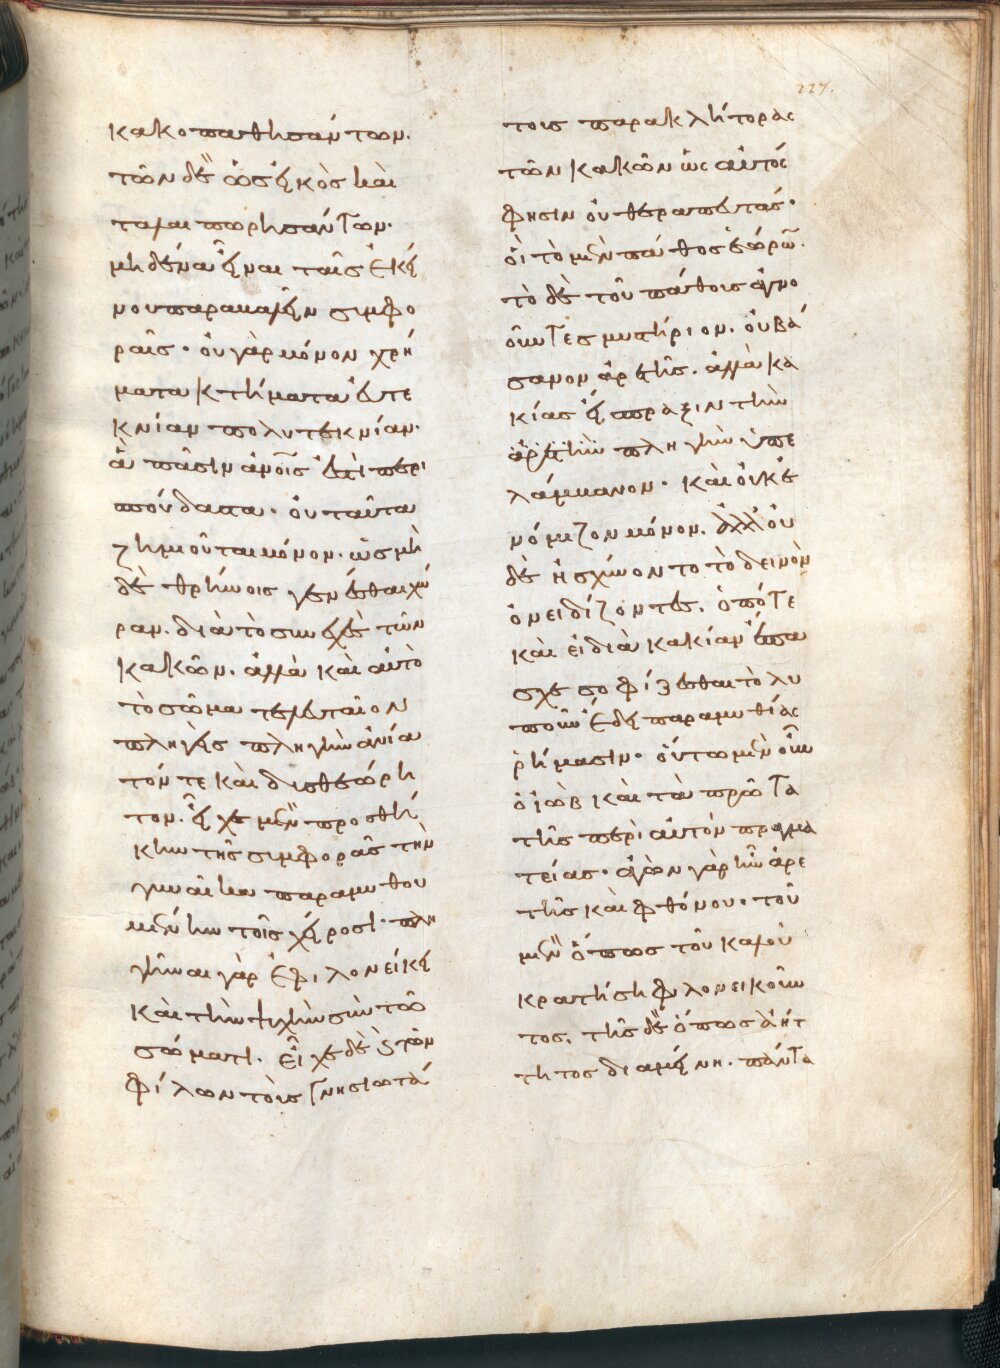 227.
κακοπαθησάντων.
τῶν δὲ ὡς εἰκὸς καὶ
ταλαιπωρησάντων.
μηδένα εἶναι ταῖς ἐκεί
νου παραβαλεῖν σιμφο
ραῖς· οὐ γὰρ μόνον χρή
ματα κτήματα εὐτε
κνίαν πολυτεκνίαν.
ἃ πᾶσιν ἀνοις ἐστὶ περι
σπούδαστα· οὐ ταῦτα
ζημιοῦται μόνον. ὡς μὴ
δὲ θρήνοις γενέσθαι χώ
ραν. διὰ τὸ συνεχὲς τῶν
κακῶν. ἀλλὰ καὶ αὐτὸ
τὸ σῶμα τελευταῖον
πληγεὶς πληγὴν ἀνία
τόν τε καὶ δυσθεώρη
τον. εἶχε μὲν προσθή
κην τῆς σιμφορᾶς τὴν
γυναῖκα παραμυθου
μένην τοῖς χείροσι· πλη
γῆναι γὰρ ἐφιλονείκει
καὶ τὴν ψυχὴν σὺν τῶ
σώματι. εἶχε δὲ ϛ τῶν
φίλων τοὺς γνησιωτά
τους παρακλήτορας
τῶν κακῶν ὡς αὐτός
φησιν οὐ θεραπευτάς·
οἳ τὸ μὲν πάθος ἑώρων.
τὸ δὲ τοῦ πάθους ἀγνο
οῦντες μυστήριον. οὐ βά
σανον ἀρετῆς. ἀλλὰ κα
κίας εἴσπραξιν τὴν
ἀρετὴν πληγὴν ὑπε
λάμβανον· καὶ οὐκ ἐ
νόμιζον μόνον. ἀλλ' οὐ
δὲ ἠσχύνοντο τὸ δεινὸν
ὀνειδίζοντες. ὁπότε
καὶ εἰ διὰ κακίαν ἔπα
σχε σοφίζεσθαι τὸ λυ
ποῦν ἔδει παραμυθίας
ῥήμασιν· οὕτω μὲν οὖν
ὁ ἰὼβ καὶ τὰ πρῶτα
τῆς περὶ αὐτὸν πραγμα
τείας· ἀγὼν γὰρ ἦν ἀρε
τῆς καὶ φθόνου· τοῦ
μὲν ὅπως τοῦ καλοῦ
κρατήση φιλονεικοῦν
τος. τῆς δὲ ὅπως ἀήτ
τητος διαμείνη. πάντα